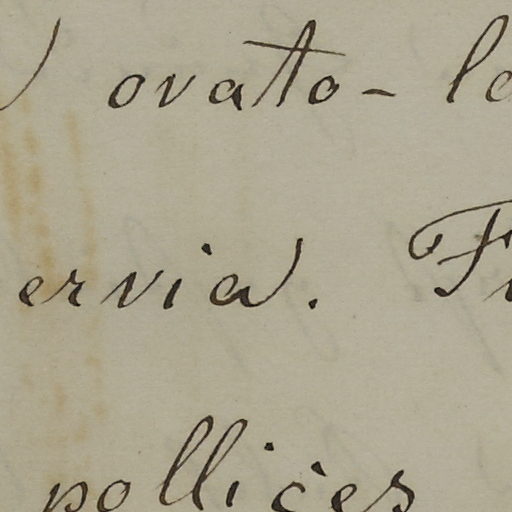 ovato-
ervia.
pollices